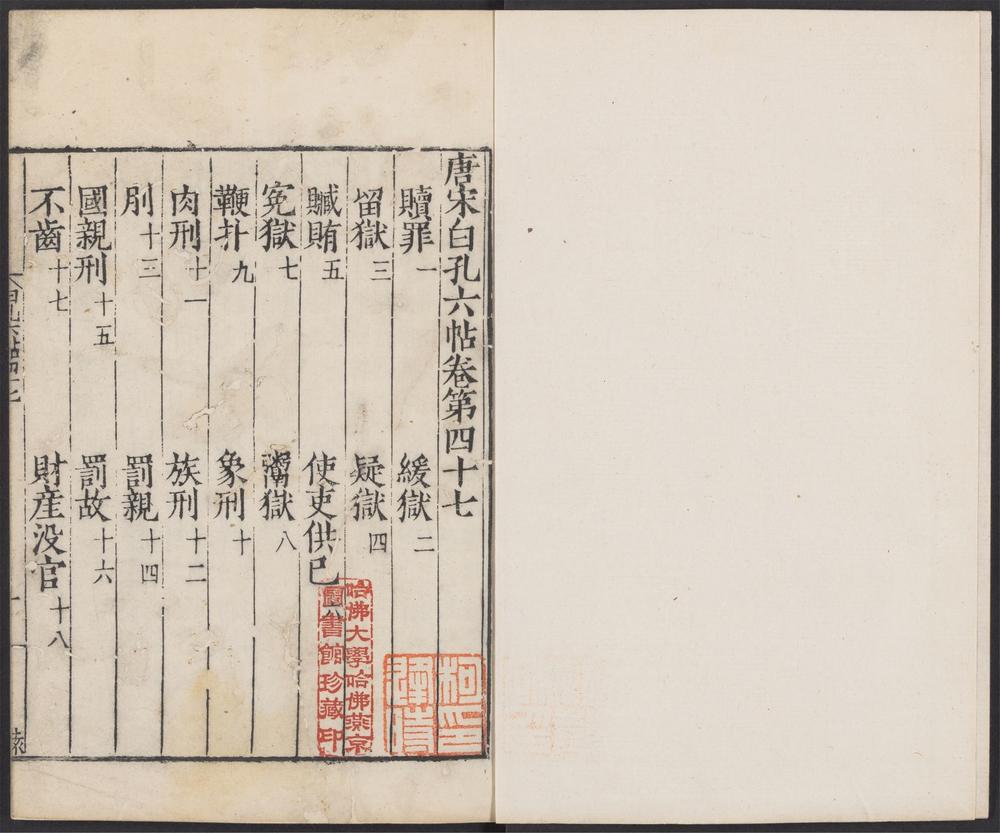 唐宋白孔六帖卷第四十七
贖罪一 緩獄二
留獄三 疑獄四
贓賄五 使吏供已六
寃獄七 鬻獄八
鞭扑九 象刑十
肉刑十一 族刑十二
刖十三 罰親十四
國親刑十五 罰故十六
不齒十七 財産没官十八
哈佛大學哈佛燕京
圖書館珍藏印
柯印
逢時